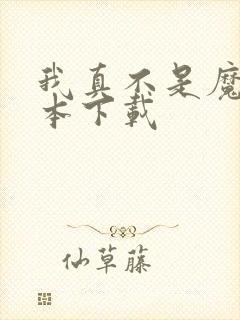 我真不是魔
本下载
仙草藤